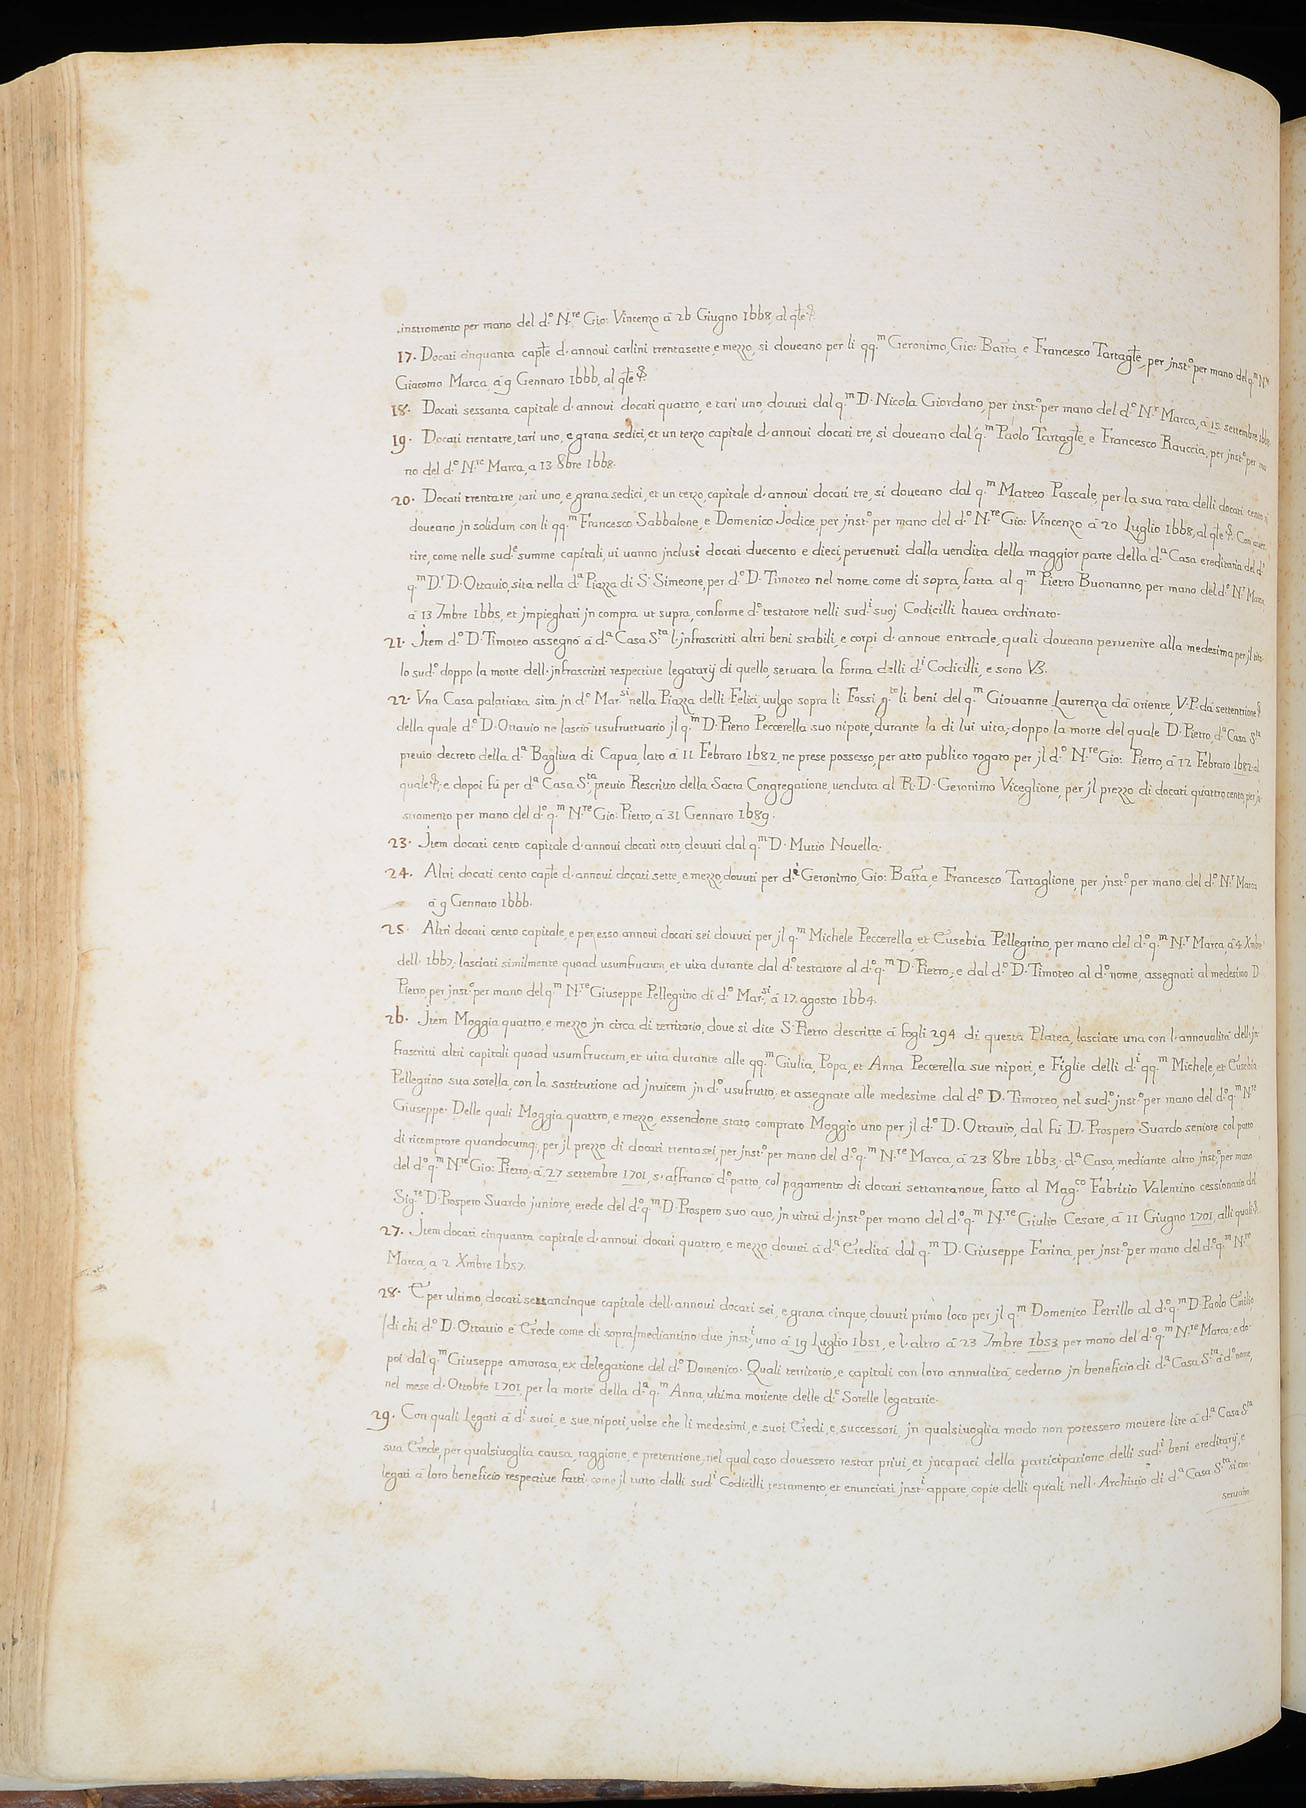 instromento per mano del d.º N.re Gio: Vincenzo à 26 Giugno 1668 al qle
17. Docati cinquanta caple d'annoui carlini trentasette, e mezzo, si doueano per li qq.m Geronimo, Gio: Batta, e Francesco Tartagle, per jnst.º per mano del q.m N.re
Giacomo Marca, à 9 Gennaro 1666, al qle
18. Docati sessanta capitale d'annoui docati quattro, e tarì uno, douuti dal q.m D. Nicola Giordano, per inst.º per mano del d.º N.r Marca, à 15 settembre
19. Docati trentatre, tarì uno, e grana sedici, et un terzo capitale d'annoui docati tre, si doueano dal q.m Paolo Tartagle, e Francesco Rauccia, per jnst.º per ma
no del d.º N.re Marca, a 13 8bre 1668.
20. Docati trentatre, tarì uno, e grana sedici, et un terzo, capitale d'annoui docati tre, si doueano dal q.m Matteo Pascale, per la sua rata delli docati cento
doueano jn solidum con li qq.m Francesco Sabbalone, e Domenico Jodice, per jnst.º per mano del d.º N.re Gio: Vincenzo à 20 Luglio 1668, al qle Con auer
tire, come nelle sud.e summe capitali, ui uanno jnclusi docati duecento e dieci, peruenuti dalla uendita della maggior parte della d.a Casa ereditaria del d.º
q.m D.r D. Ottauio, sita nella d.a Piazza di S. Simeone, per d.º D. Timoteo nel nome come di sopra, fatta al q.m Pietro Buonanno, per mano del d.º N.r Marca,
à 13 7mbre 1665, et jmpieghati jn compra ut supra, conforme d.º testatore nelli sud.i suoj Codicilli hauea ordinato.
21. Jtem d.º D. Timoteo assegnò à d.a Casa S.ta l'jnfrascritti altri beni stabili, e corpi d'annue entrade, quali doueano peruenire alla medesima per jl tito
lo sud.º doppo la morte dell'jnfrascritti respectiue legatarij di quello, seruata la forma delli d.i Codicilli, e sono V3.
22. Vna Casa palatiata sita jn d.º Mar.si nella Piazza delli Felici, uulgo sopra li Fossi g.to li beni del q.m Giouanne Laurenza dà oriente, V.P. dà settentrione
della quale d.º D. Ottauio ne lasciò usufruttuario jl q.m D. Pietro Peccerella suo nipote, durante la di lui uita; doppo la morte del quale D. Pietro, d.a Casa S.ta
preuio decreto della d.a Bagliua di Capua, lato à 11 Febraro 1682, ne prese possesso, per atto publico rogato per jl d.º N.re Gio: Pietro, à 12 Febraro 1682. al
quale; e dopoi fù per d.a Casa S.ta, preuio Rescritto della Sacra Congregatione, uenduta al R. D. Geronimo Viceglione, per jl prezzo di docati quattrocento, per jn
stromento per mano del d.º q.m N.re Gio: Pietro, à 31 Gennaro 1689.
23. Jtem docati cento capitale d'annoui docati otto, douuti dal q.m D. Mutio Nouella.
24. Altri docati cento caple d'annoui docati sette, e mezzo, douuti per d.i Geronimo, Gio: Batta, e Francesco Tartaglione, per jnst.º per mano del d.º N.r Marca
à 9 Gennaro 1666.
25. Altri docati cento capitale, e per esso annoui docati sei douuti per jl q.m Michele Peccerella, et Eusebia Pellegrino, per mano del d.º q.m N.r Marca, à 4 Xmbre
dell' 1667; lasciati similmente quoad usumfructum, et uita durante dal d.º testatore al d.º q.m D. Pietro; e dal d.º D. Timoteo al d.º nome, assegnati al medesimo D.
Pietro, per jnst.º per mano del q.m N.re Giuseppe Pellegrino di d.º Mar.si, à 17 agosto 1664.
26. Jtem Moggia quattro, e mezzo jn circa di territorio, doue si dice S. Pietro descritte à fogli 294 di questa Platea, lasciate una con l'annualità dell'jn
frascritti altri capitali quoad usumfructum, et uita durante alle qq.m Giulia, Popa, et Anna Peccerella sue nipoti, e Figlie delli d.i qq.m Michele, et Eusebia
Pellegrino sua sorella, con la sostitutione ad jnuicem jn d.º usufrutto, et assegnate alle medesime dal d.º D. Timoteo, nel sud.º jnst.º per mano del d.º q.m N.re
Giuseppe. Delle quali Moggia quattro, e mezzo, essendone stato comprato Moggio uno per jl d.º D. Ottauio, dal fù D. Prospero Suardo seniore col patto
di ricomprare quandocumq;, per jl prezzo di docati trentasei, per jnst.º per mano del d.º q.m N.re Marca, à 23 8bre 1663; d.a Casa, mediante altro jnst.º per mano
del d.º q.m N.re Gio: Pietro, à 27 settembre 1701, s'affrancò d.º patto, col pagamento di docati settantanoue, fatto al Mag.co Fabritio Valentino cessionario del
Sig.re D. Prospero Suardo juniore, erede del d.º q.m D. Prospero suo auo, jn uirtù d'jnst.º per mano del d.º q.m N.re Giulio Cesare, à 11 Giugno 1701, alli quali
27. Jtem docati cinquanta capitale d'annoui docati quattro, e mezzo, douuti à d.a Eredità dal q.m D. Giuseppe Farina, per jnst.º per mano del d.º q.m N.re
Marca, a 2 Xmbre 1657.
28. E per ultimo, docati settancinque capitale dell'annoui docati sei, e grana cinque, douuti primo loco per jl q.m Domenico Petrillo al d.º q.m D. Paolo Emilio
/di chi d.º D. Ottauio è Erede come di sopra/ mediantino due jnst.i, uno à 19 Luglio 1651, e l'altro à 23 7mbre 1653 per mano del d.º q.m N.re Marca, e do
poi dal q.m Giuseppe amorosa, ex delegatione del d.º Domenico. Quali territorio, e capitali con loro annualità, cederno jn beneficio di d.a Casa S.ta à d.º nome,
nel mese d'Ottobre 1701, per la morte della d.a q.m Anna, ultima moriente delle d.e Sorelle legatarie.
29. Con quali Legati à d.i suoi, e sue nipoti, uolse che li medesimi, e suoi Eredi, e successori, jn qualsiuoglia modo non potessero mouere lite à d.a Casa S.ta
sua Erede, per qualsiuoglia causa, raggione, e pretentione, nel qual caso douessero restar priui, et jncapaci della participatione delli sud.i beni ereditarij, e
legati à loro beneficio respectiue fatti; come jl tutto dalli sud.i Codicilli, testamento, et enunciati jnst.i appare, copie delli quali nell'Archiuio di d.a Casa S.ta si con
seruano